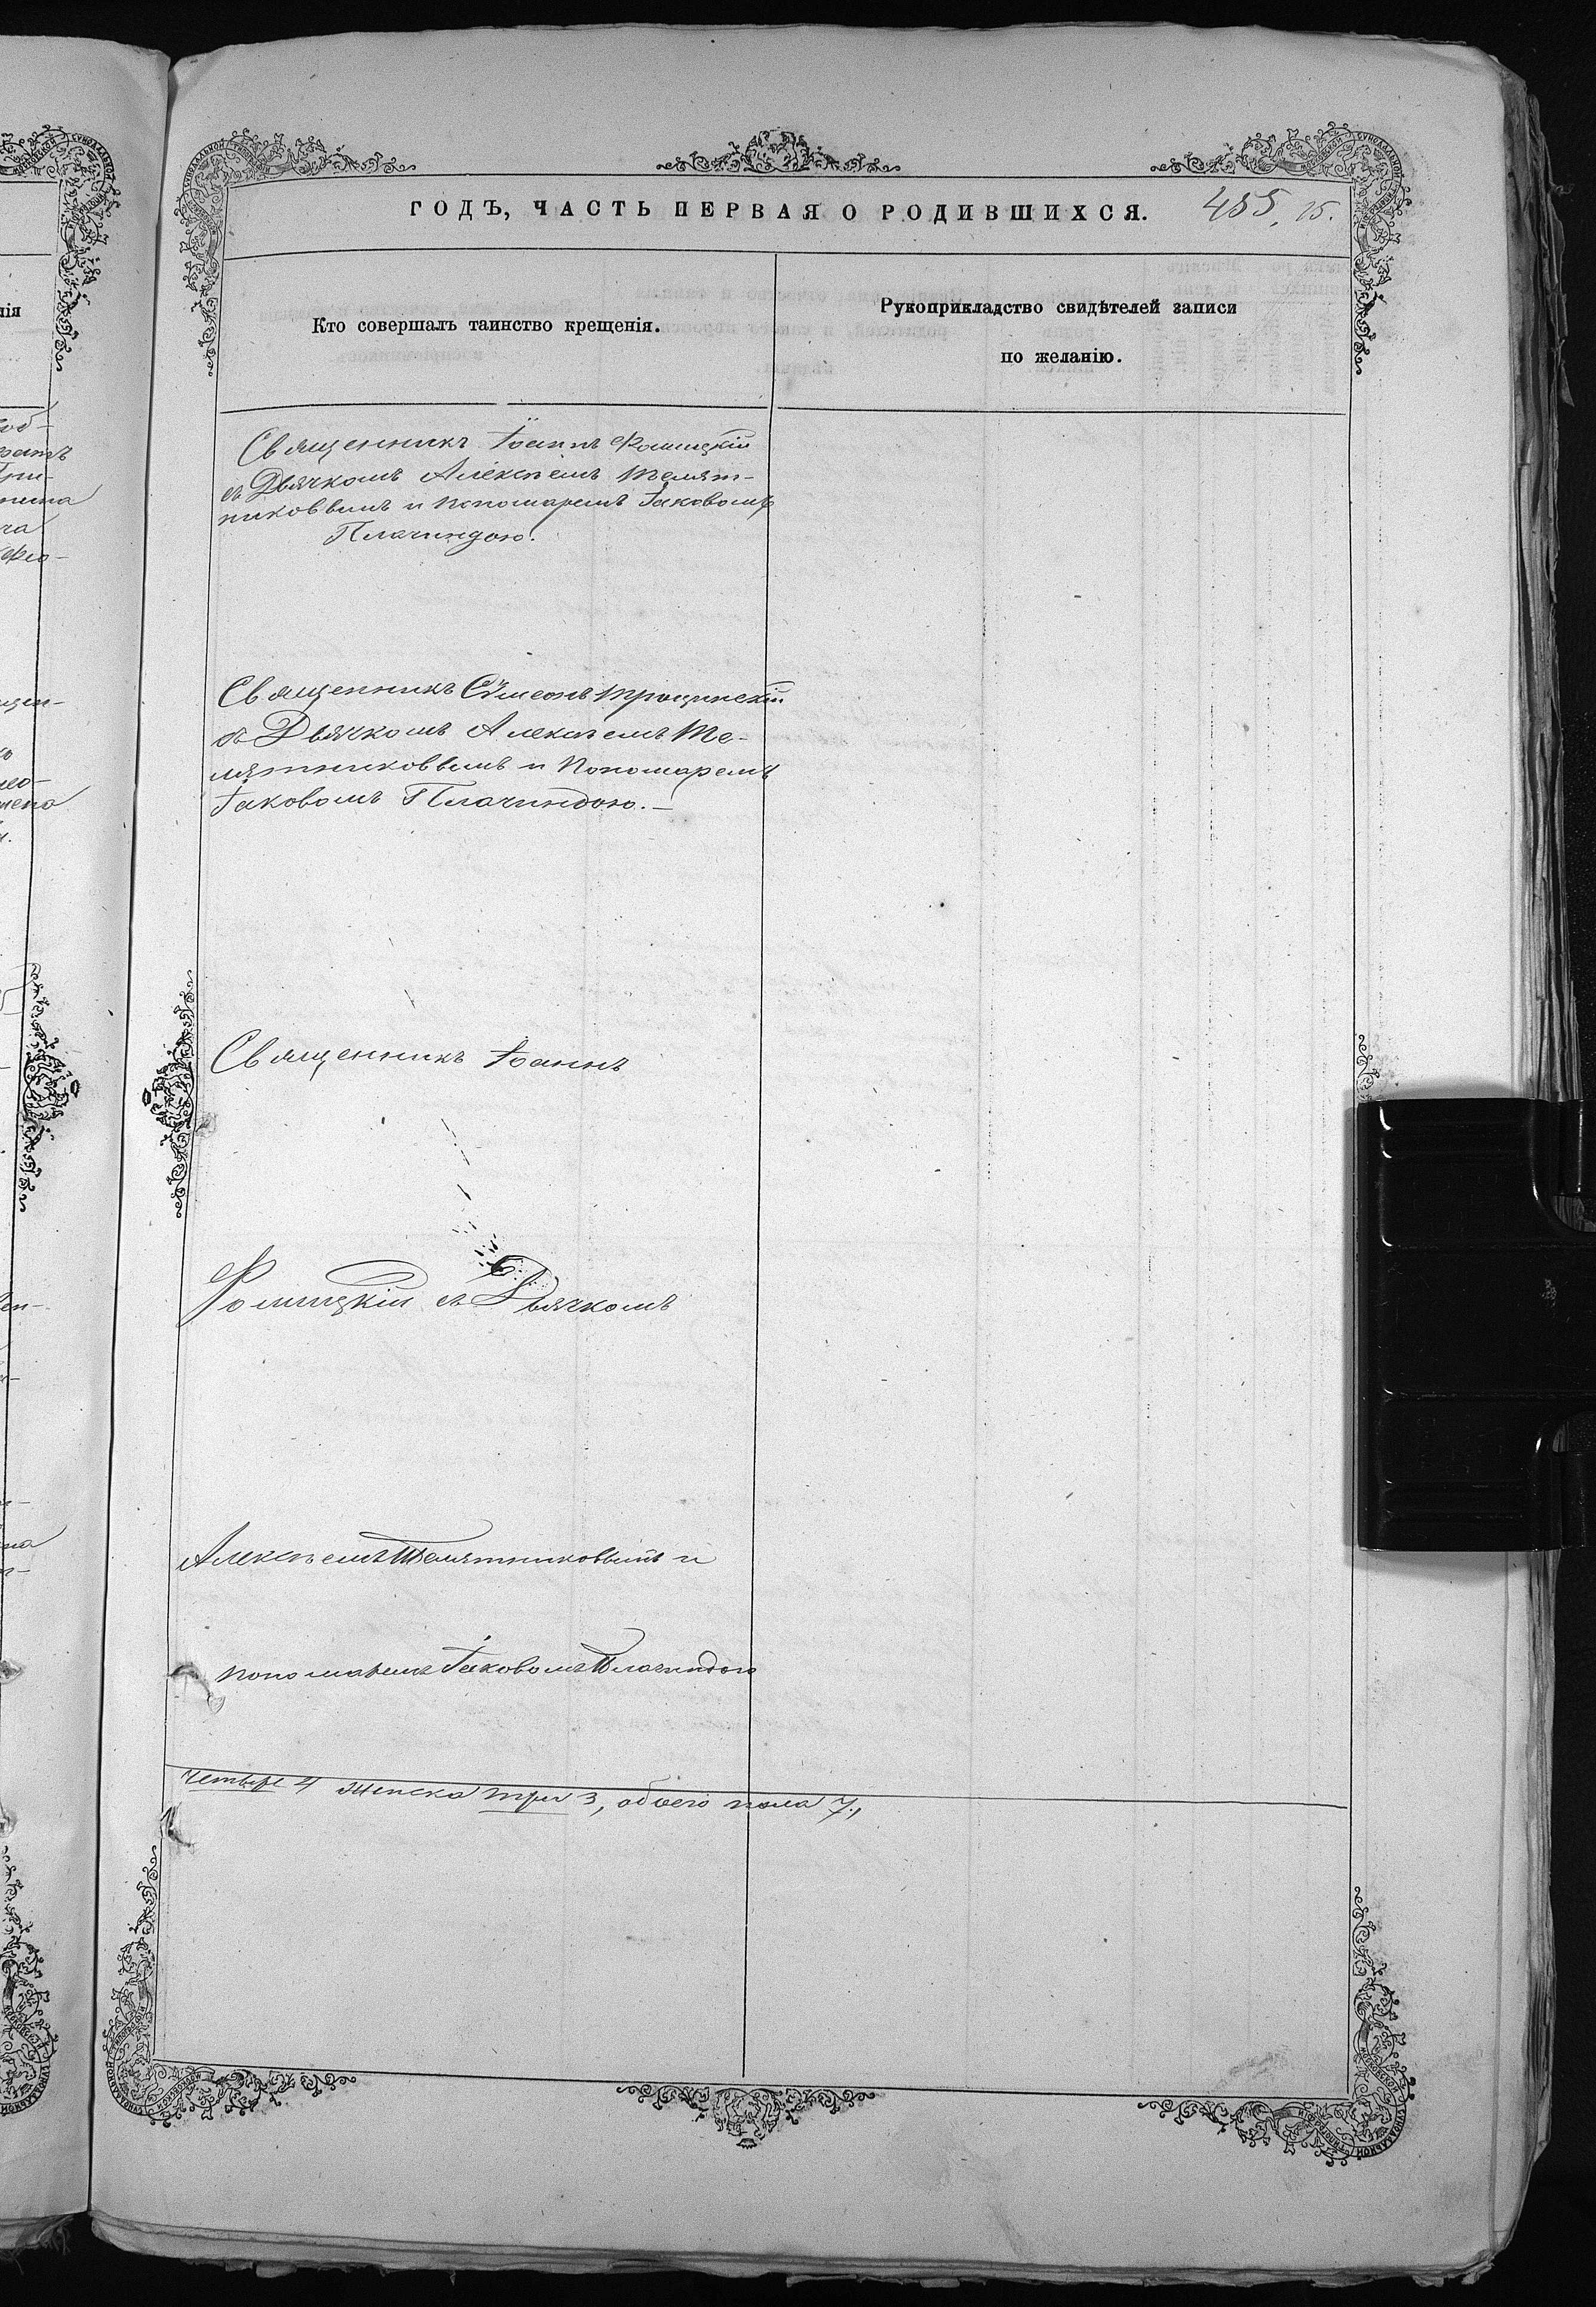 ГОДЪ, ЧАСТЬ ПЕРВАЯ О РОДИВШИХСЯ. 455. 15.
Кто совершалъ таинство крещенія.
Рукоприкладство свидѣтелей записи
по желанію.
Священникъ Іоаннъ Фомицкій
съ Дьячкомъ Алексѣемъ Телят-
никовымъ и пономаремъ Іаковомъ
Плачиндою.
Священникъ Сѵмеонъ Трощинскій
съ Дьячкомъ Алексѣемъ Те-
лятниковымъ и Пономаремъ
Іаковомъ Плачиндою.—
Священникъ Іоаннъ
Фомицкій съ Дьячкомъ
Алексѣемъ Телятниковымъ и
пономаремъ Іаковомъ Плачиндою
четыре 4 женска три 3, обоего пола 7.,